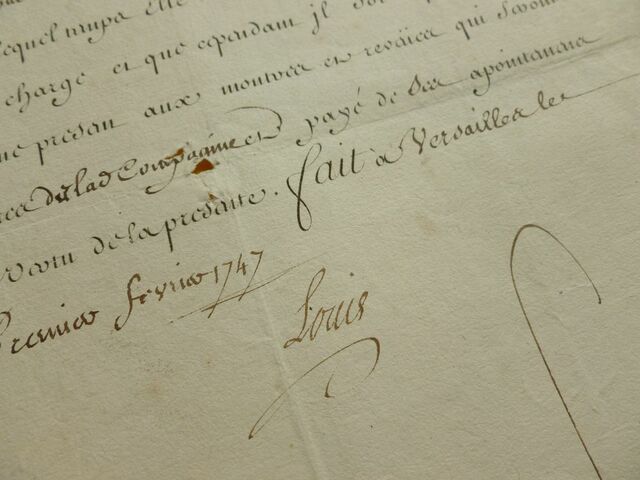 lequel temps
charge et que cependant jl
presant aux montres et reveües qui seront
dela d Compagnie et payé de ses apointemens
vertu de la presente. fait a Versailles le
Premier fevrier 1747
Louis